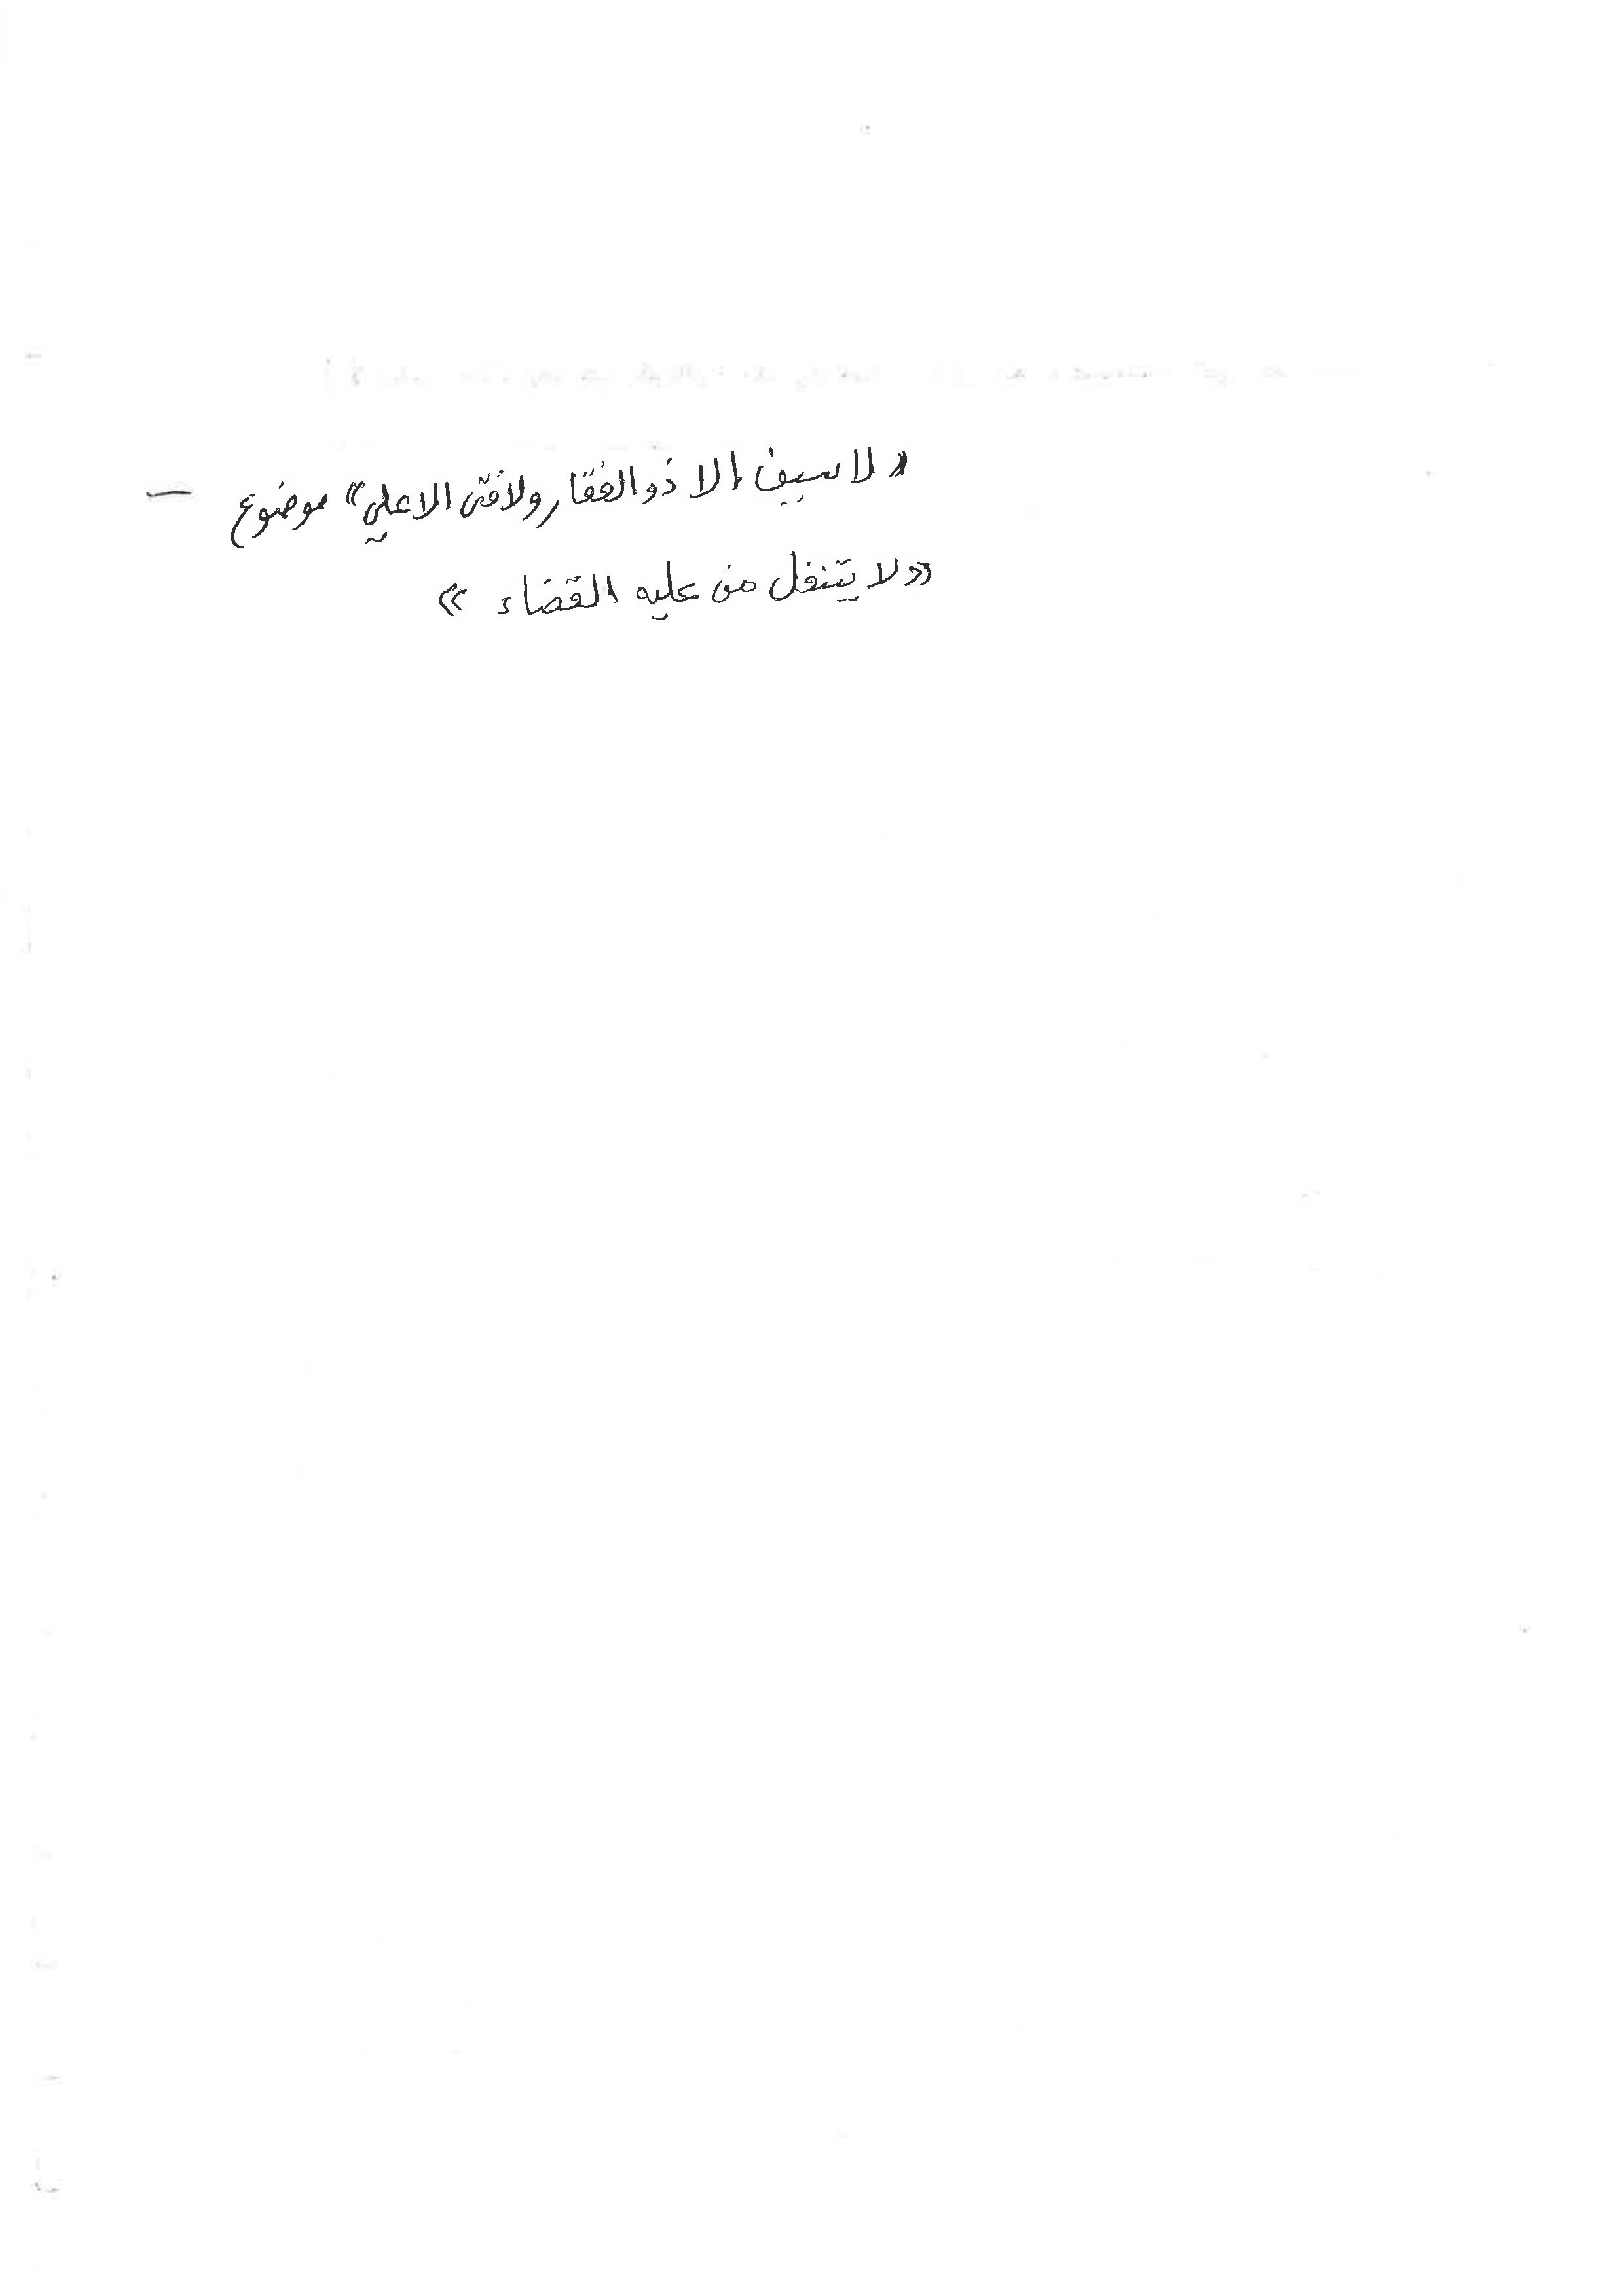 «لا سيف إلا ذو الفقار ولا فتى الا علي» موضوع –
«لا يتنفل من عليه القضاء»